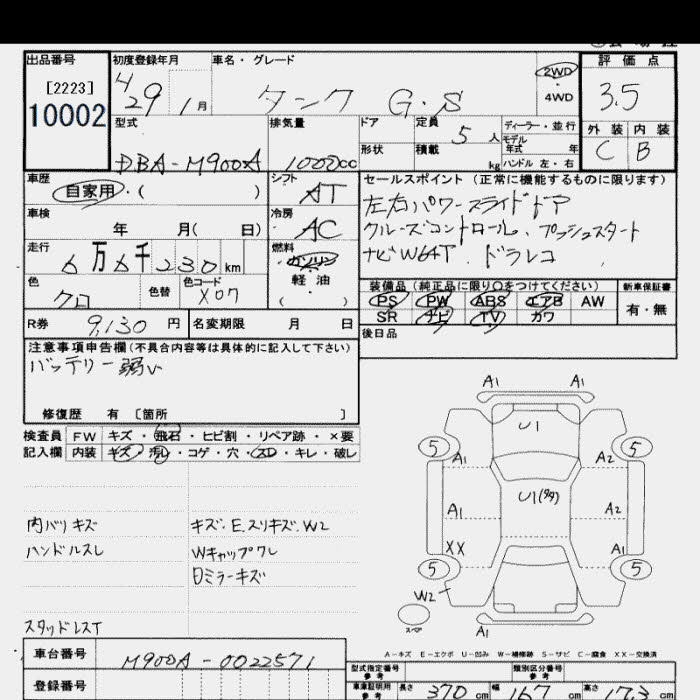 出品番号 初度登録年月 車名・グレード 評価点
[2223] 4/29年 1月 タンク G・S 2WD・4WD 3.5
10002
型式 排気量 ドア 定員 5人 ディーラー・並行 外装 内装
DBA-M900A 1000cc 形状 積載 kg モデル年式 年 ハンドル 左・右 C B
車歴 シフト セールスポイント(正常に機能するものに限ります)
自家用・( ) AT 左右パワースライドドア
車検 冷房 クルーズコントロール、プッシュスタート
年 月( 日) AC ナビW64T、ドラレコ
走行 燃料
6万6千230km ガソリン
軽油
( )
色 色替 色コード 装備品(純正品に限り○をつけてください) 新車保証書
クロ X07 PS PW ABS エアB AW 有・無
SR ナビ TV カワ
R券 9,130円 名変期限 月 日 後日品
注意事項申告欄(不具合内容等は具体的に記入して下さい)
バッテリー弱い
修復歴 有 〔箇所 〕
検査員 FW キズ・飛石・ヒビ割・リペア跡・×要
記入欄 内装 キズ・汚レ・コゲ・穴・スレ・キレ・破レ
内バリキズ キズ、E、スリキズ、W2
ハンドルスレ Wキャップワレ
日ミラーキズ
スタッドレスT
A1 A1
U1
5 5
A1 A2
U1(多)
A1 A2
XX A1
5 5
W2
スペア
A1
A-キズ E-エクボ U-凹み W-補修跡 S-サビ C-腐食 XX-交換済
車台番号 M900A-0022571
型式指定番号 参考 類別区分番号 参考
登録番号 車庫証明用 参考 長さ 370cm 幅 167cm 高さ 173cm